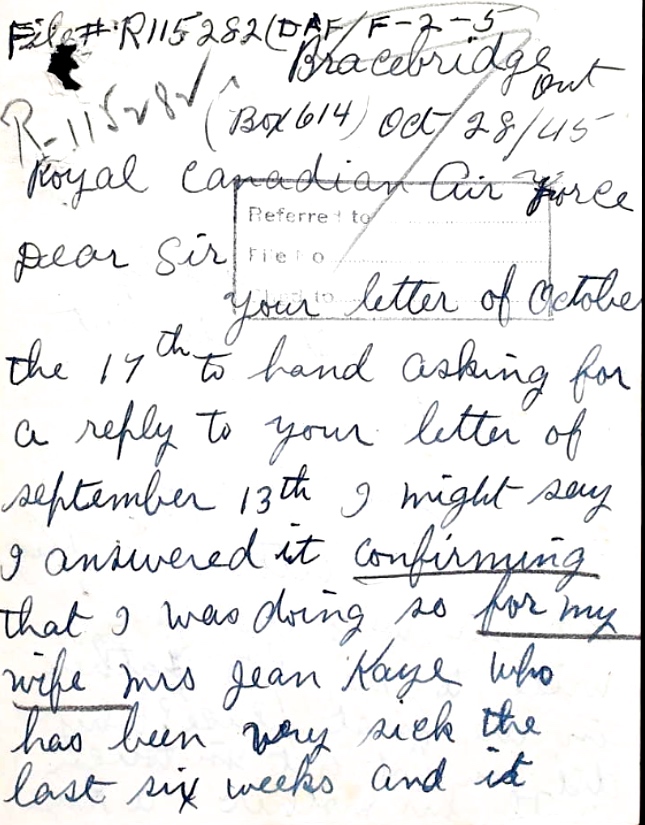 File #: R115282 (DAF/F-2-5
Bracebridge
Ont
R-115282
(Box 614) Oct 28/45
Royal Canadian Air Force
Referred to
Dear Sir
File No
your letter of Octobe
the 17th to hand asking for
a reply to your letter of
september 13th I might say
I answered it confirming
that I was doing so for my
wife Mrs Jean Kaye who
has been very sick the
last six weeks and it